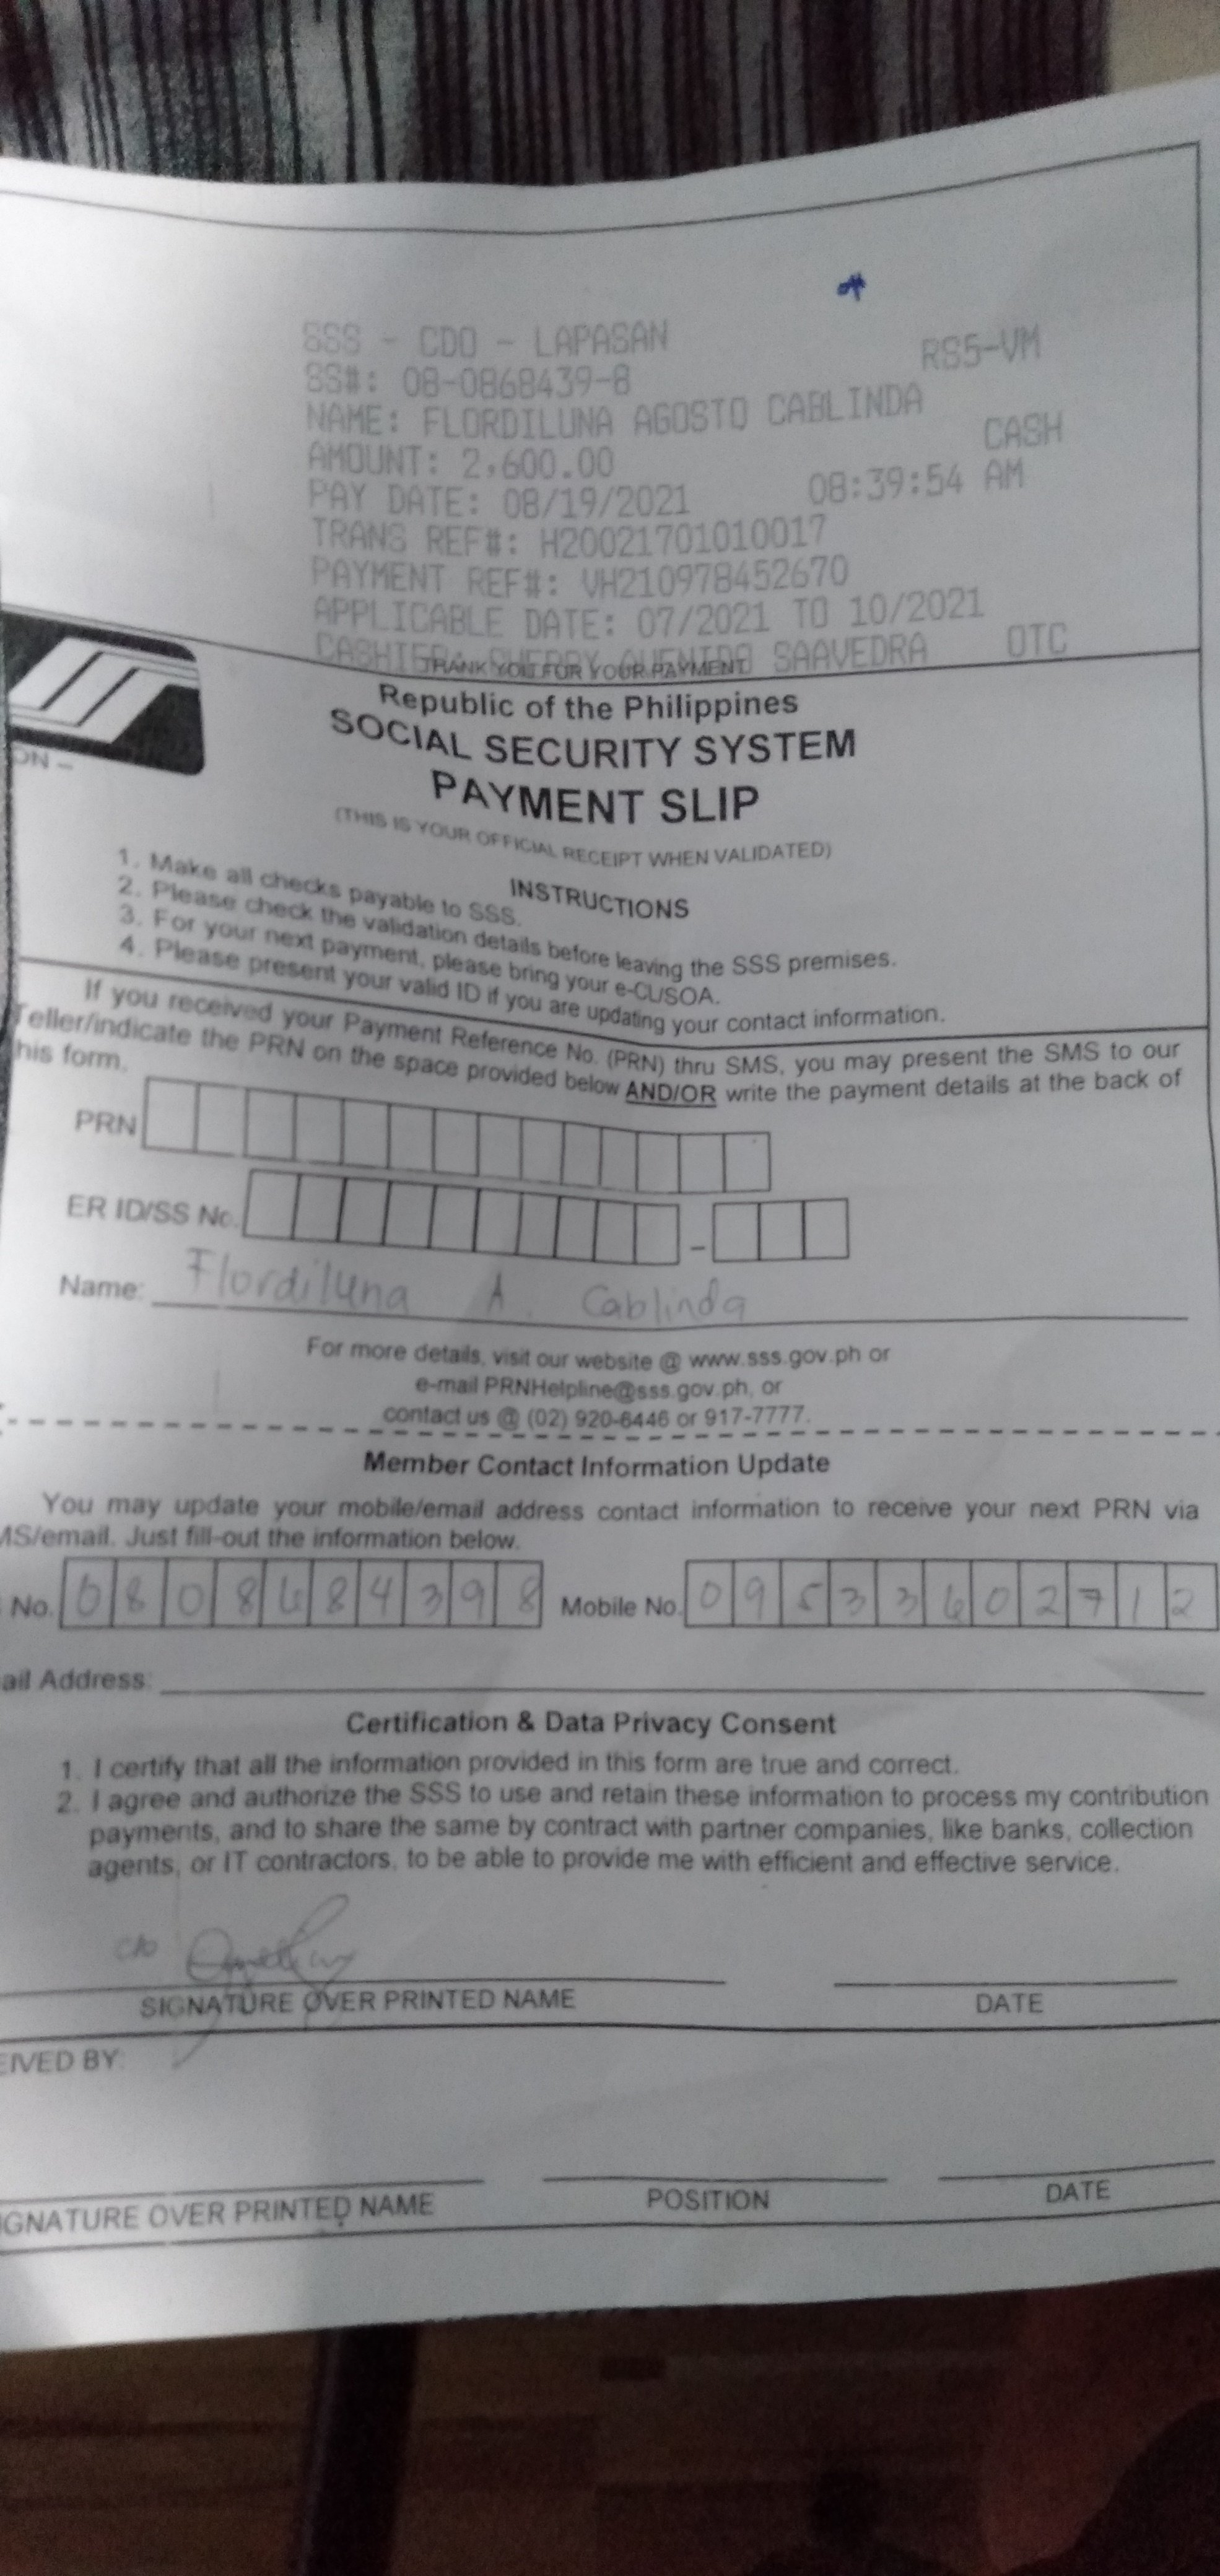 SSS - CDO - LAPASAN RS5-VM
SS#: 08-0868439-8
NAME: FLORDILUNA AGOSTO CABLINDA
AMOUNT: 2,600.00 CASH
PAY DATE: 08/19/2021 08:39:54 AM
TRANS REF#: H20021701010017
PAYMENT REF#: VH210978452670
APPLICABLE DATE: 07/2021 TO 10/2021
CASHIER: CHERRY SAAVEDRA OTC
THANK YOU FOR YOUR PAYMENT
ON –
Republic of the Philippines
SOCIAL SECURITY SYSTEM
PAYMENT SLIP
(THIS IS YOUR OFFICIAL RECEIPT WHEN VALIDATED)
INSTRUCTIONS
1. Make all checks payable to SSS.
2. Please check the validation details before leaving the SSS premises.
3. For your next payment, please bring your e-CUSOA.
4. Please present your valid ID if you are updating your contact information.
If you received your Payment Reference No. (PRN) thru SMS, you may present the SMS to our
Teller/indicate the PRN on the space provided below AND/OR write the payment details at the back of
his form.
PRN
ER ID/SS No. –
Name: Flordiluna A. Cablinda
For more details, visit our website @ www.sss.gov.ph or
e-mail PRNHelpline@sss.gov.ph, or
contact us @ (02) 920-6446 or 917-7777.
Member Contact Information Update
You may update your mobile/email address contact information to receive your next PRN via
MS/email. Just fill-out the information below.
No. 0808684398 Mobile No. 09533602712
ail Address:
Certification & Data Privacy Consent
1. I certify that all the information provided in this form are true and correct.
2. I agree and authorize the SSS to use and retain these information to process my contribution
payments, and to share the same by contract with partner companies, like banks, collection
agents, or IT contractors, to be able to provide me with efficient and effective service.
c/o
SIGNATURE OVER PRINTED NAME DATE
EIVED BY:
IGNATURE OVER PRINTED NAME POSITION DATE